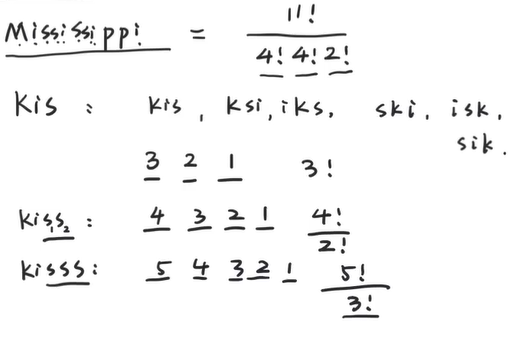 Mississippi = 11! / 4! 4! 2!
Kis : kis, ksi, iks, ski, isk,
sik.
3 2 1 3!
Kiss₁₂ : 4 3 2 1 4! / 2!
Kisss: 5 4 3 2 1 5! / 3!